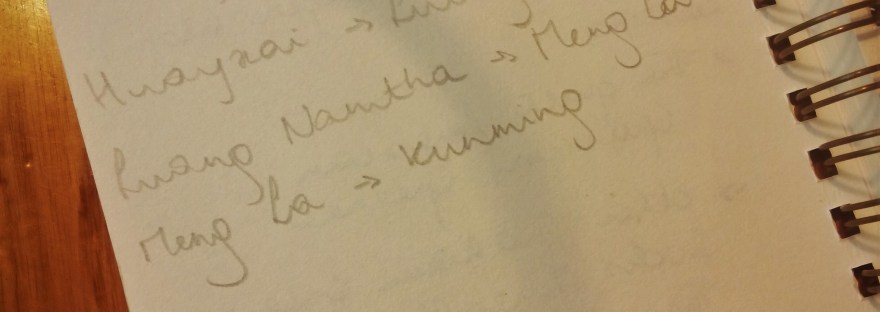 Huayxai →
Luang Namtha → Meng La
Meng La → Kunming